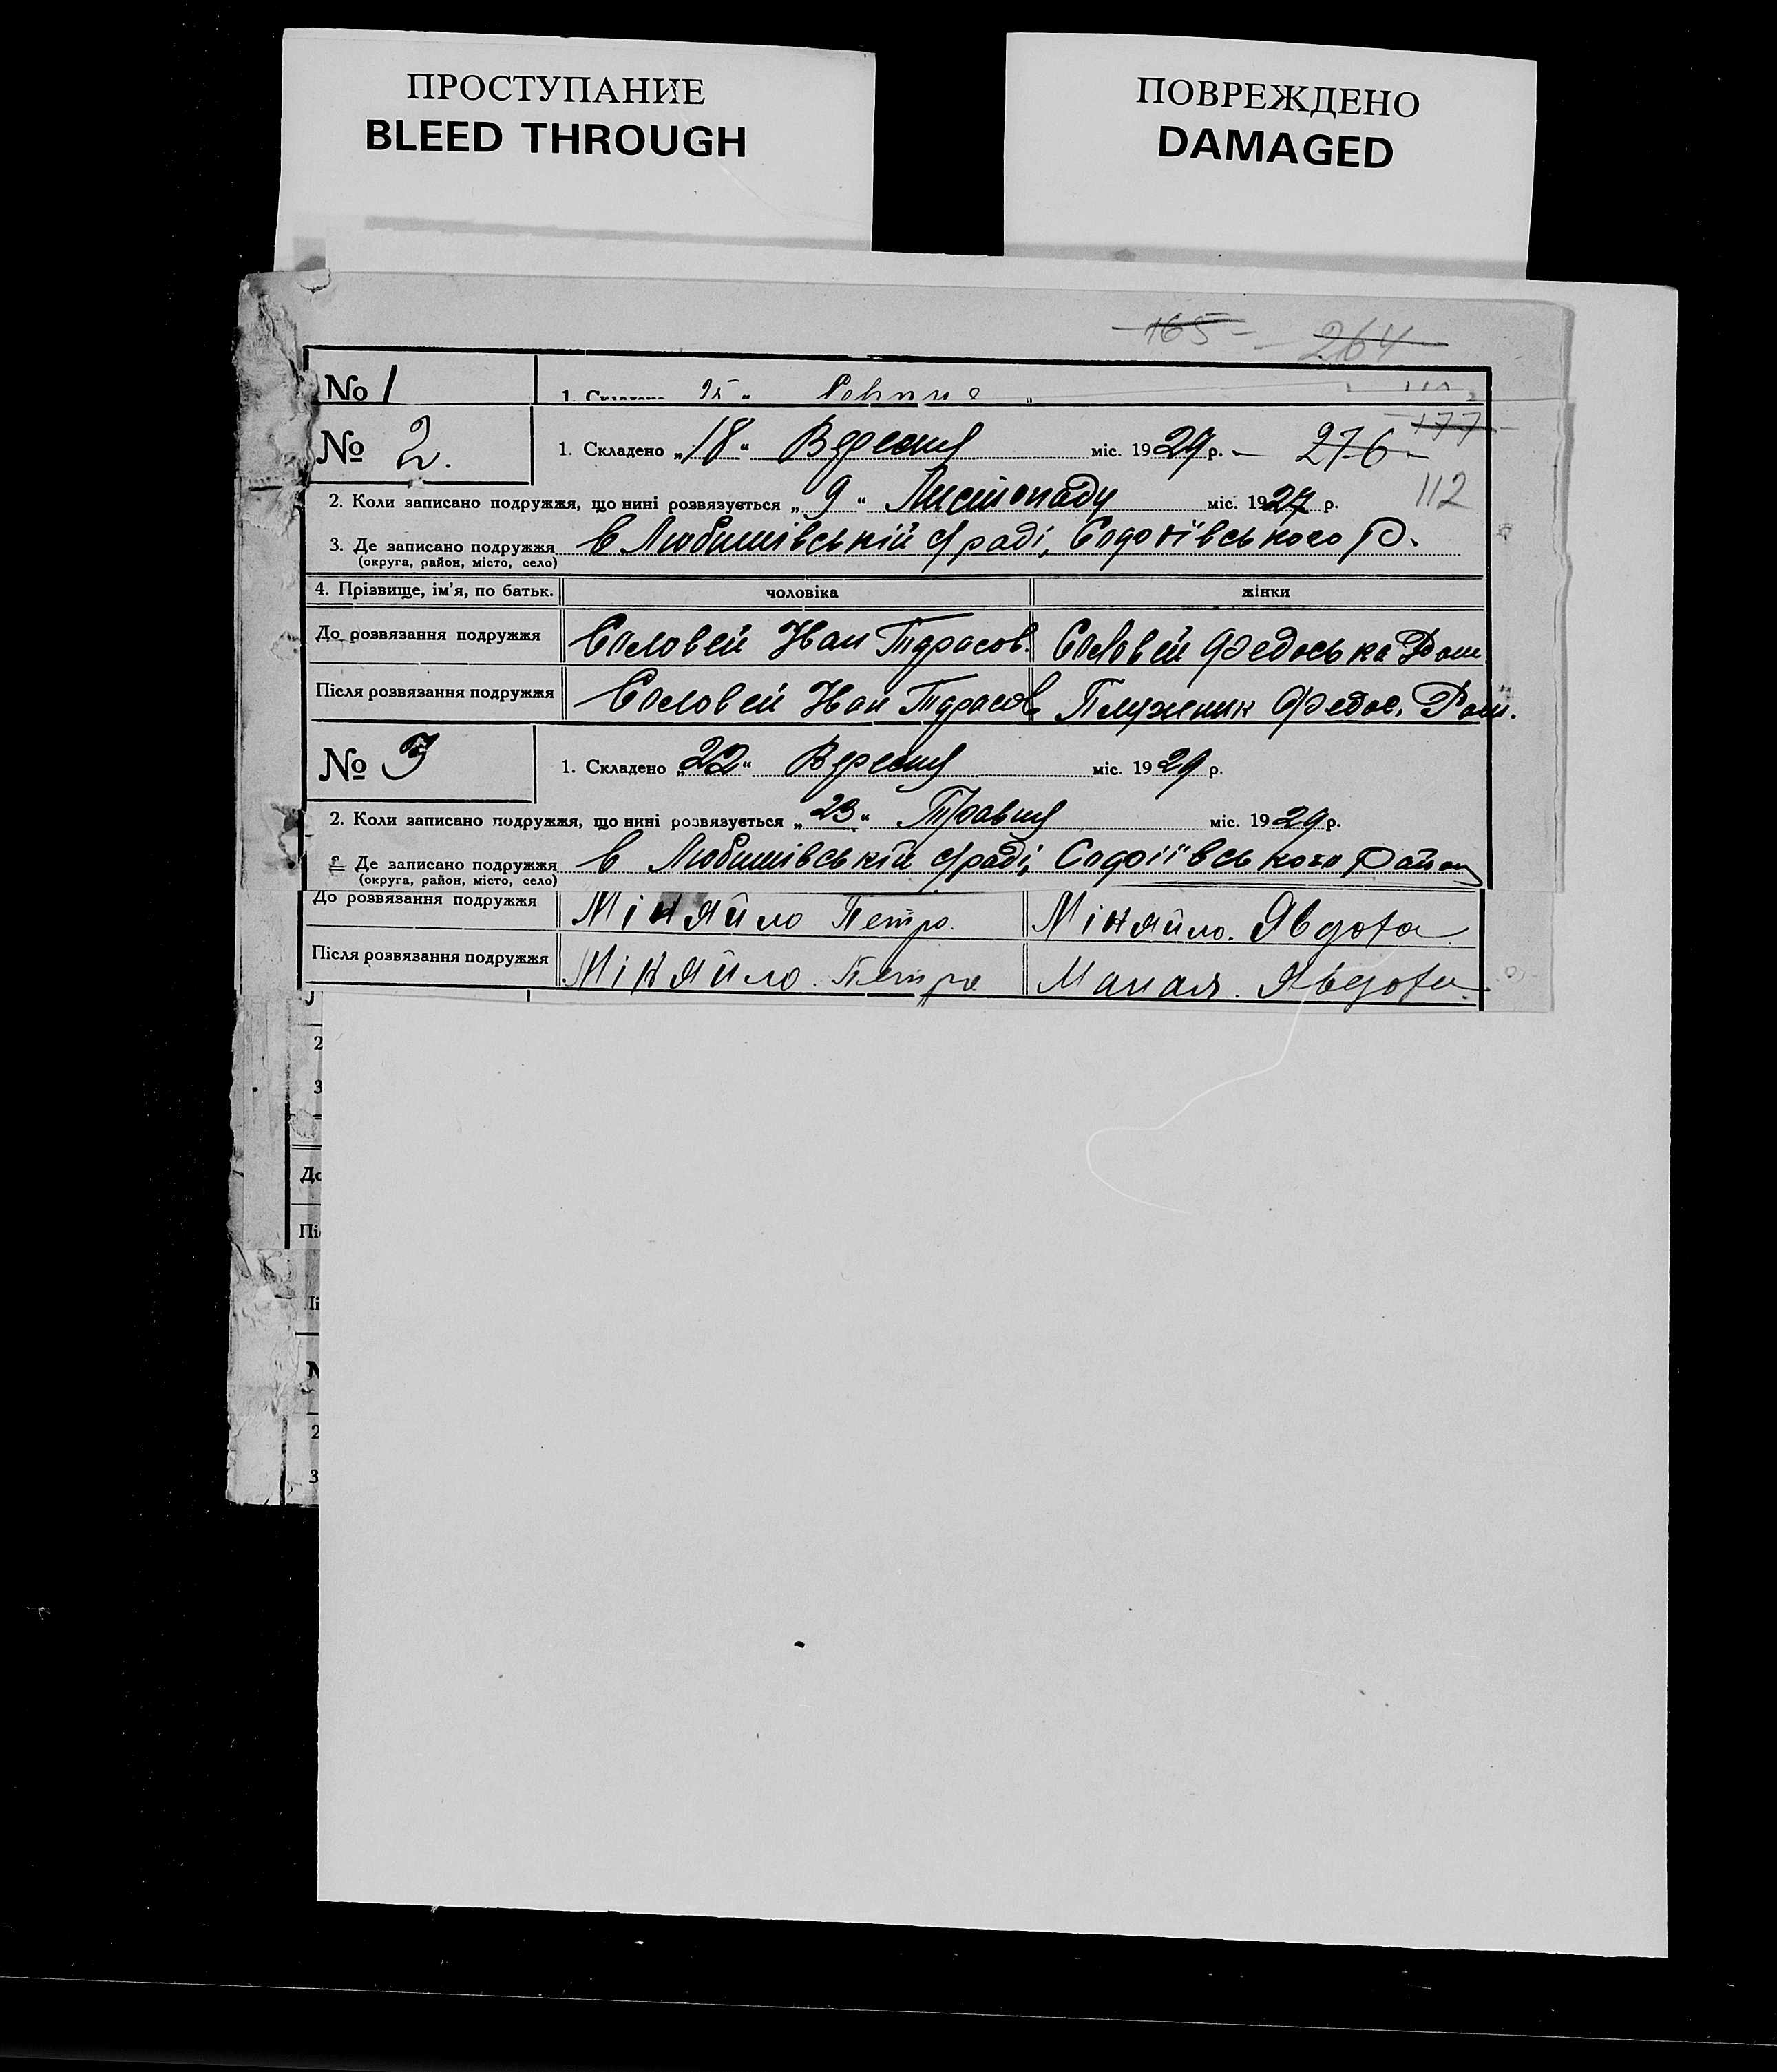 ПРОСТУПАНИЕ
BLEED THROUGH
ПОВРЕЖДЕНО
DAMAGED
165 - 264
№ 1
25 "
177
№ 2. 1. Складено „18" Вересня міс. 1929 р. — 276 -
2. Коли записано подружжя, що нині розвязується „9" Листопаду міс. 1927 р. 112
3. Де записано подружжя в Любимівській с/раді,
(округа, район, місто, село)
4. Прізвище, ім'я, по батьк. чоловіка жінки
До розвязання подружжя Соловей Іван Тарасов. Соловей Федоська Ром.
Після розвязання подружжя Соловей Іван Тарасов Плужник Федос. Ром.
№ 3 1. Складено „22" Вересня міс. 1929 р.
2. Коли записано подружжя, що нині розвязується „23" Травня міс. 1929 р.
Де записано подружжя в Любимівській с/раді, Району
(округа, район, місто, село)
До розвязання подружжя Міняйло Петро. Міняйло. Явдоха
Після розвязання подружжя Міняйло. Петро Маная. Явдоха.
2
3
До
Пі
2
3